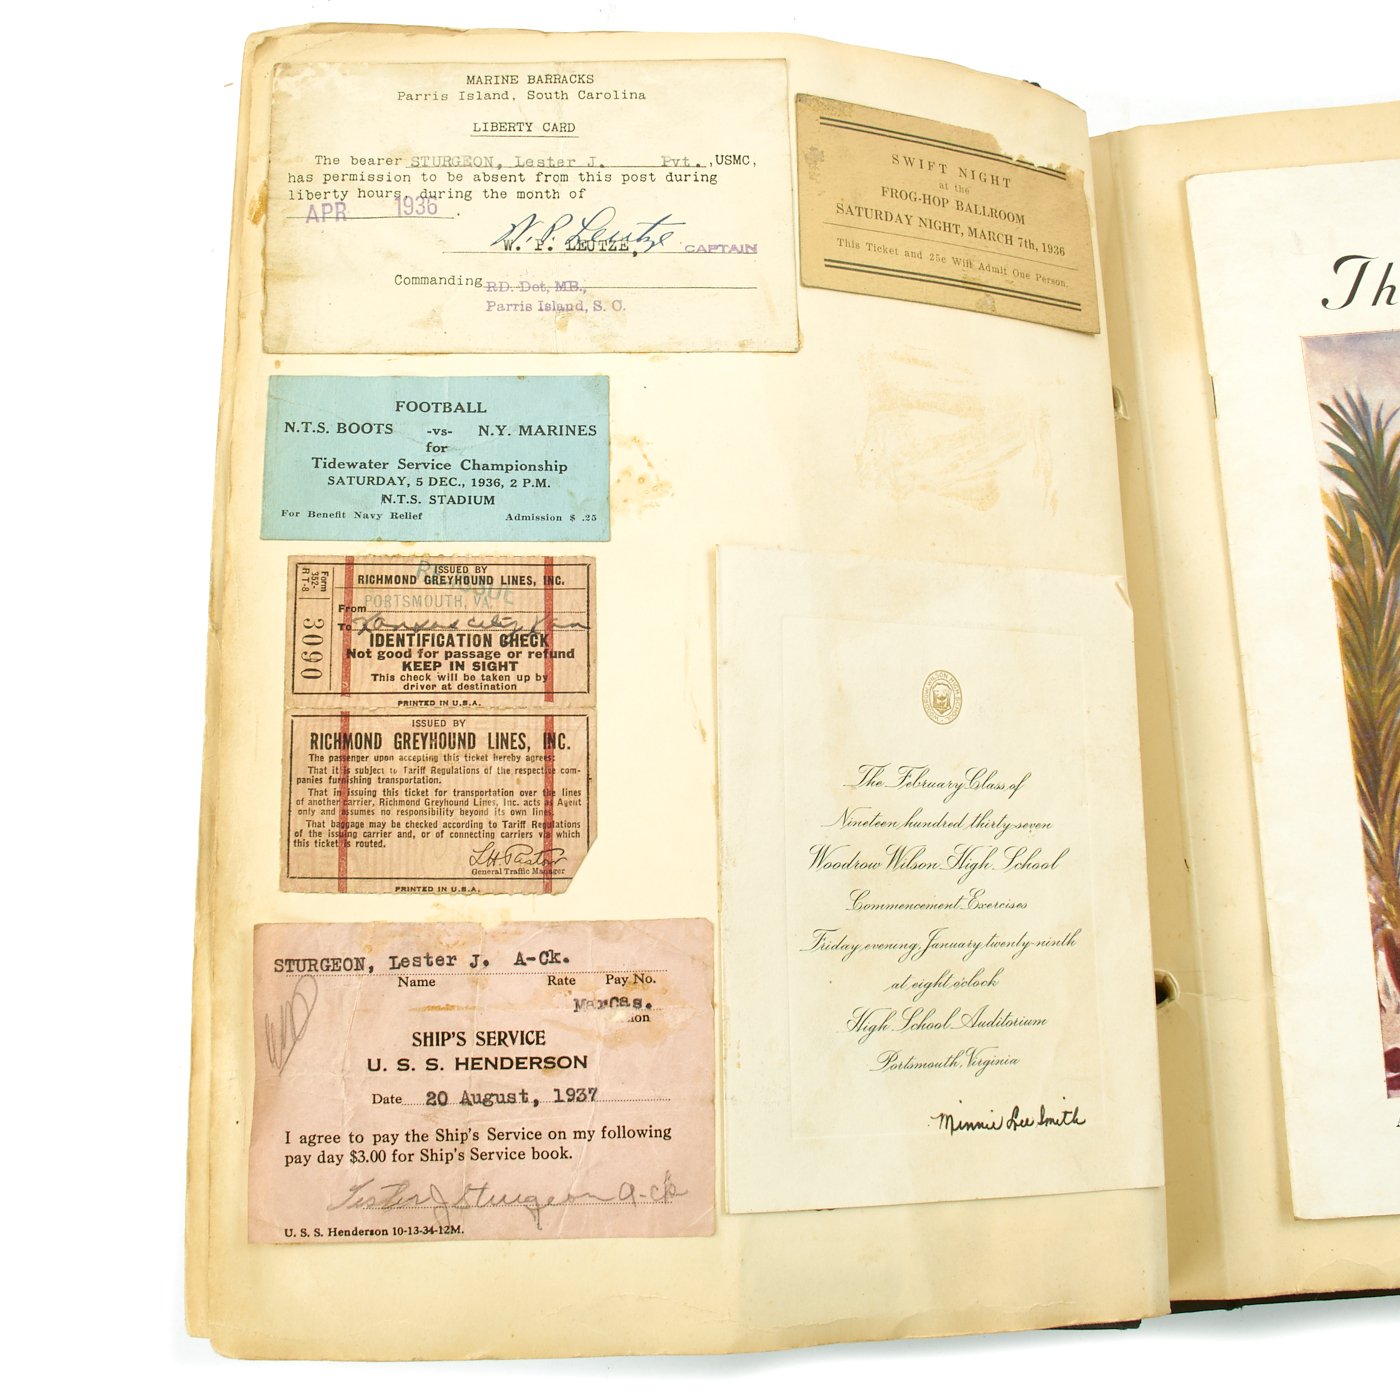 MARINE BARRACKS
Parris Island, South Carolina
LIBERTY CARD
The bearer STURGEON, Lester J. Pvt. ,USMC,
has permission to be absent from this post during
liberty hours, during the month of
APR 1936 .
W. P. Leutze
W. P. LEUTZE, CAPTAIN
Commanding RD. Det, MB.,
Parris Island, S. C.
SWIFT NIGHT
at the
FROG-HOP BALLROOM
SATURDAY NIGHT, MARCH 7th, 1936
This Ticket and 25c Will Admit One Person.
FOOTBALL
N.T.S. BOOTS -vs- N.Y. MARINES
for
Tidewater Service Championship
SATURDAY, 5 DEC., 1936, 2 P.M.
N.T.S. STADIUM
For Benefit Navy Relief Admission $ .25
Form
352-
R T-8
3090
ISSUED BY
RICHMOND GREYHOUND LINES, INC.
From PORTSMOUTH, VA.
To Kansas City Kan
IDENTIFICATION CHECK
Not good for passage or refund
KEEP IN SIGHT
This check will be taken up by
driver at destination
PRINTED IN U.S.A.
ISSUED BY
RICHMOND GREYHOUND LINES, INC.
The passenger upon accepting this ticket hereby agrees:
That it is subject to Tariff Regulations of the respective com-
panies furnishing transportation.
That in issuing this ticket for transportation over the lines
of another carrier, Richmond Greyhound Lines, Inc. acts as Agent
only and assumes no responsibility beyond its own lines.
That baggage may be checked according to Tariff Regulations
of the issuing carrier and, or of connecting carriers via which
this ticket is routed.
General Traffic Manager
PRINTED IN U.S.A.
STURGEON, Lester J. A-Ck.
Name Rate Pay No.
Marcas.
ion
SHIP'S SERVICE
U. S. S. HENDERSON
Date 20 August, 1937
I agree to pay the Ship's Service on my following
pay day $3.00 for Ship's Service book.
Lester J Sturgeon A-ck
U. S. S. Henderson 10-13-34-12M.
WOODROW WILSON HIGH SCHOOL
The February Class of
Nineteen hundred thirty-seven
Woodrow Wilson High School
Commencement Exercises
Friday evening, January twenty-ninth
at eight o'clock
High School Auditorium
Portsmouth, Virginia
Minnie Lee Smith
Th